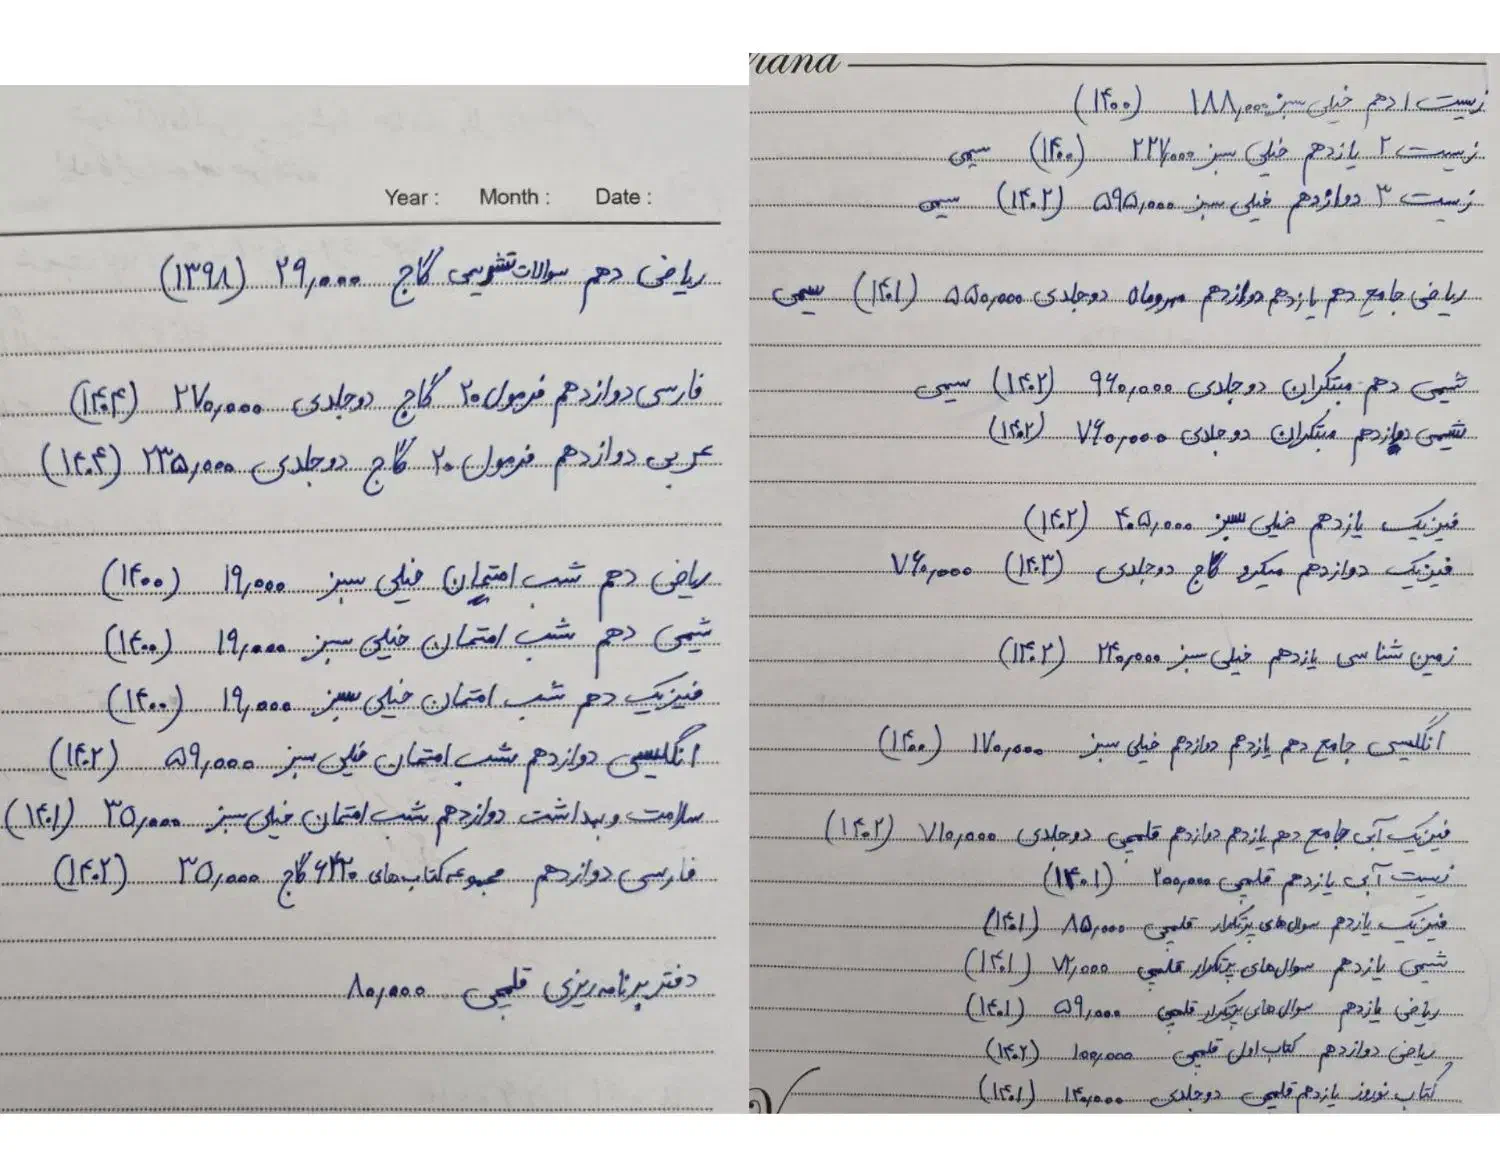 Year : Month : Date :
ریاضی دهم سوالات تشریحی گاج ۲۹,۰۰۰ (۱۳۹۸)
فارسی دوازدهم فرمول ۲۰ گاج دوجلدی ۲۷۰,۰۰۰ (۱۴۰۴)
عربی دوازدهم فرمول ۲۰ گاج دوجلدی ۲۳۵,۰۰۰ (۱۴۰۴)
ریاضی دهم شب امتحان خیلی سبز ۱۹,۰۰۰ (۱۴۰۰)
شیمی دهم شب امتحان خیلی سبز ۱۹,۰۰۰ (۱۴۰۰)
فیزیک دهم شب امتحان خیلی سبز ۱۹,۰۰۰ (۱۴۰۰)
انگلیسی دوازدهم شب امتحان خیلی سبز ۵۹,۰۰۰ (۱۴۰۲)
سلامت و بهداشت دوازدهم شب امتحان خیلی سبز ۳۵,۰۰۰ (۱۴۰۱)
فارسی دوازدهم مجموعه کتاب‌های ۶۴۲۰ گاج ۳۵,۰۰۰ (۱۴۰۲)
دفتر برنامه ریزی قلمچی ۸۰,۰۰۰
زیست ۱ دهم خیلی سبز ۱۸۸,۰۰۰ (۱۴۰۰)
زیست ۲ یازدهم خیلی سبز ۲۲۷,۰۰۰ (۱۴۰۰) سیمی
زیست ۳ دوازدهم خیلی سبز ۵۹۵,۰۰۰ (۱۴۰۲) سیمی
ریاضی جامع دهم یازدهم دوازدهم مهروماه دوجلدی ۵۵۰,۰۰۰ (۱۴۰۱) سیمی
شیمی دهم مبتکران دوجلدی ۹۶۰,۰۰۰ (۱۴۰۲) سیمی
شیمی دوازدهم مبتکران دوجلدی ۷۶۰,۰۰۰ (۱۴۰۲)
فیزیک یازدهم خیلی سبز ۴۰۵,۰۰۰ (۱۴۰۲)
فیزیک دوازدهم میکرو گاج دوجلدی (۱۴۰۳) ۷۶۰,۰۰۰
زمین شناسی یازدهم خیلی سبز ۲۴۰,۰۰۰ (۱۴۰۲)
انگلیسی جامع دهم یازدهم دوازدهم خیلی سبز ۱۷۰,۰۰۰ (۱۴۰۰)
فیزیک آبی جامع دهم یازدهم دوازدهم قلمچی دوجلدی ۷۱۰,۰۰۰ (۱۴۰۲)
زیست آبی یازدهم قلمچی ۲۰۰,۰۰۰ (۱۴۰۱)
فیزیک یازدهم سوال‌های پرتکرار قلمچی ۸۵,۰۰۰ (۱۴۰۱)
شیمی یازدهم سوال‌های پرتکرار قلمچی ۷۲,۰۰۰ (۱۴۰۱)
ریاضی یازدهم سوال های پرتکرار قلمچی ۵۹,۰۰۰ (۱۴۰۱)
ریاضی دوازدهم کتاب اول قلمچی ۱۰۰,۰۰۰ (۱۴۰۲)
کتاب نوروز یازدهم قلمچی دوجلدی ۱۴۰,۰۰۰ (۱۴۰۱)